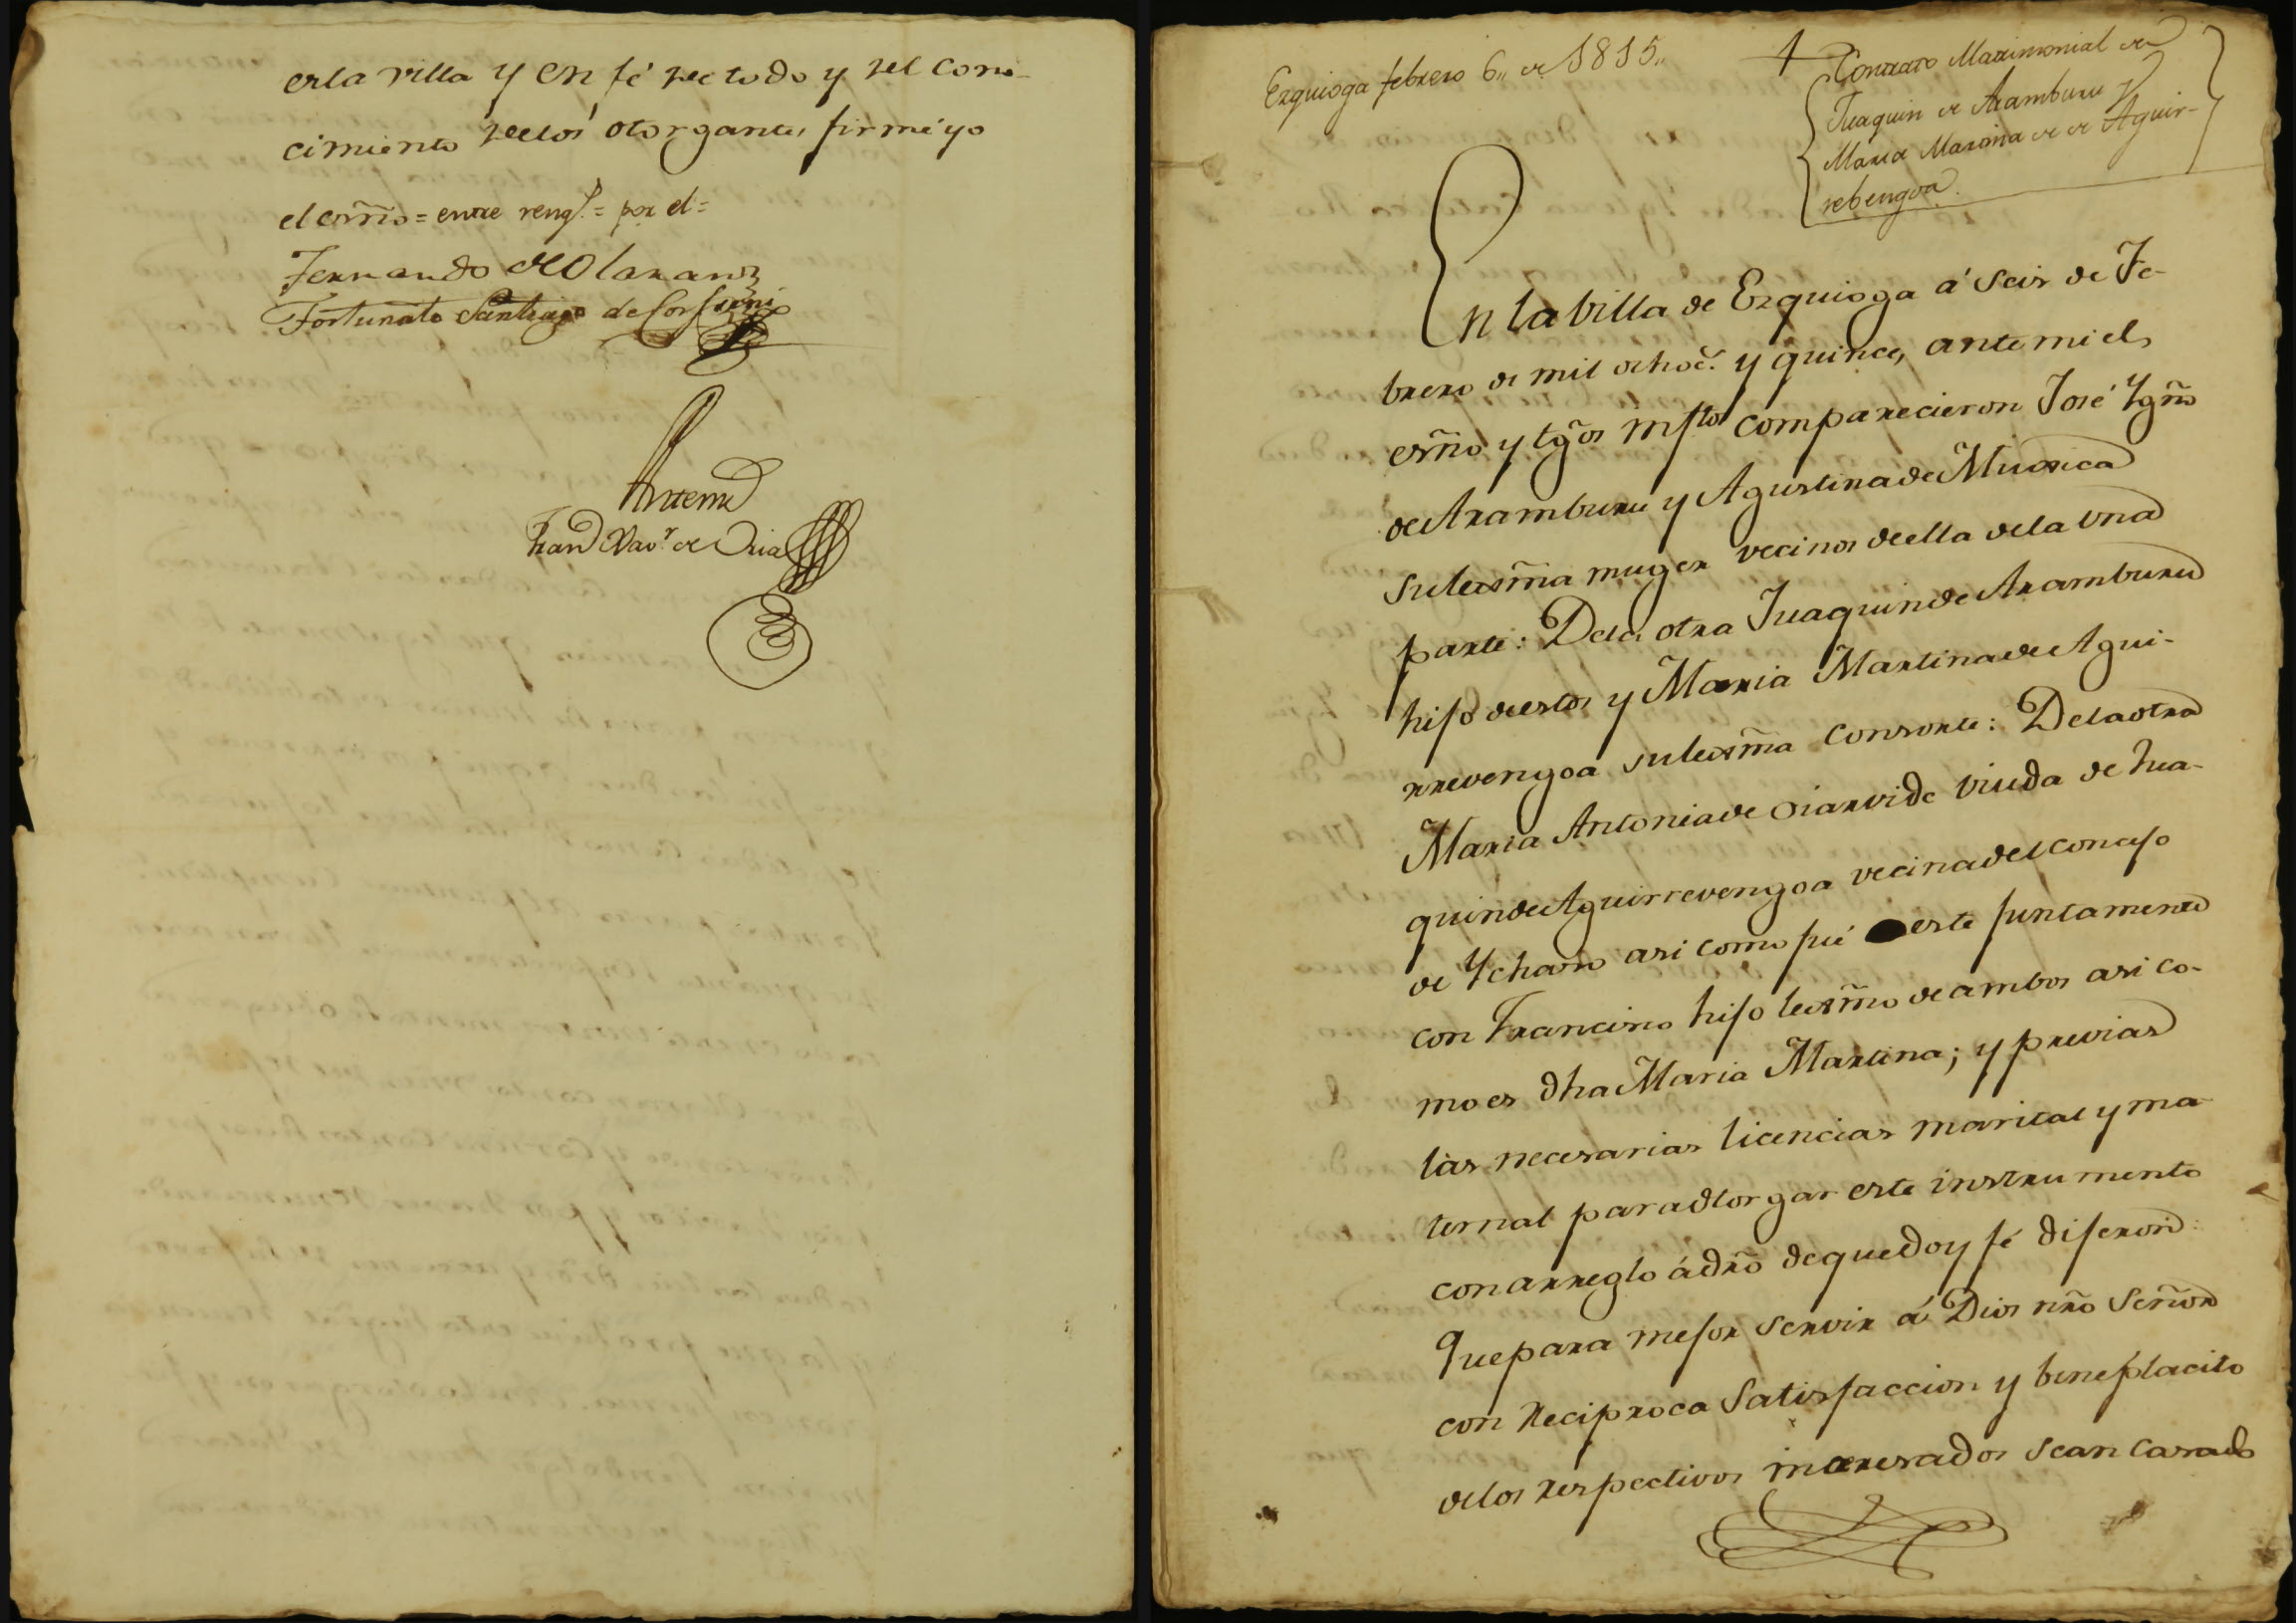 esta villa y en fé de todo y del cono-
cimiento de los otorgantes firmé yo
el esrño = entre rengs. = por el =
Fernando de Olaran
Fortunato Santiago de
Antemi
Fran Xavr. de Oria
Ezquioga febrero 6,, de 1815,,
Contrato Matrimonial de
Juaquin de Aramburu y
Maria Martina de de Aguir-
rebengoa.
En la Villa de Ezquioga á seis de Fe-
brero de mil ochoc.s y quince, ante mi el
esrño y tgõs infrtos comparecieron José Ygño
de Aramburu y Agustina de Muxica
su lexma muger vecinos de ella de la una
parte: De la otra Juaquin de Aramburu
hijo de estos y Maria Martina de Agui-
rrevengoa su lexma consorte: De la otra
Maria Antonia de Oiarvide Viuda de Jua-
quin de Aguirrevengoa vecina del concejo
de Ychaso asi como fué este juntamente
con Francisco hijo lexmo de ambos asi co-
mo es dha Maria Martina; y previas
las necesarias licencias marital y ma-
ternal para otorgar este instrumento
con arreglo á dro de que doy fé dijeron:
Que para mejor servir á Dios nro Señor
con reciproca satisfaccion y beneplacito
de los respectivos interesados sean casado